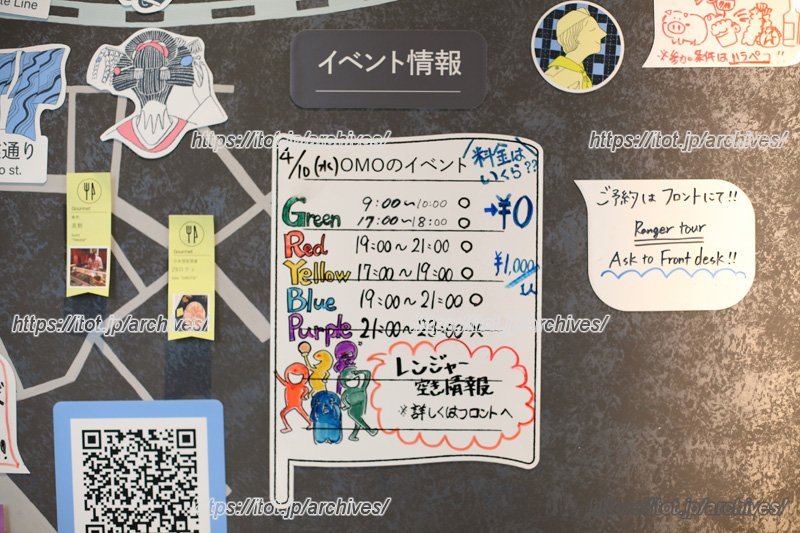 te Line
イベント情報
※参加条件はハラペコ!!
通り
o st.
4/10(水)OMOのイベント
料金は
いくら??
Green
9:00〜10:00 ○
17:00〜18:00 ○
→¥0
Red 19:00〜21:00 ○
Yellow 17:00〜19:00 ○
¥1,000
Blue 19:00〜21:00 ○
Purple 21:00〜23:00
レンジャー
空き情報
※詳しくはフロントへ
ご予約はフロントにて!!
Ranger tour
Ask to Front desk!!
Gourmet
Gourmet
https://itot.jp/archives/
https://itot.jp/archives/
https://itot.jp/archives/
https://itot.jp/archives/
https://itot.jp/archives/
https://itot.jp/archives/